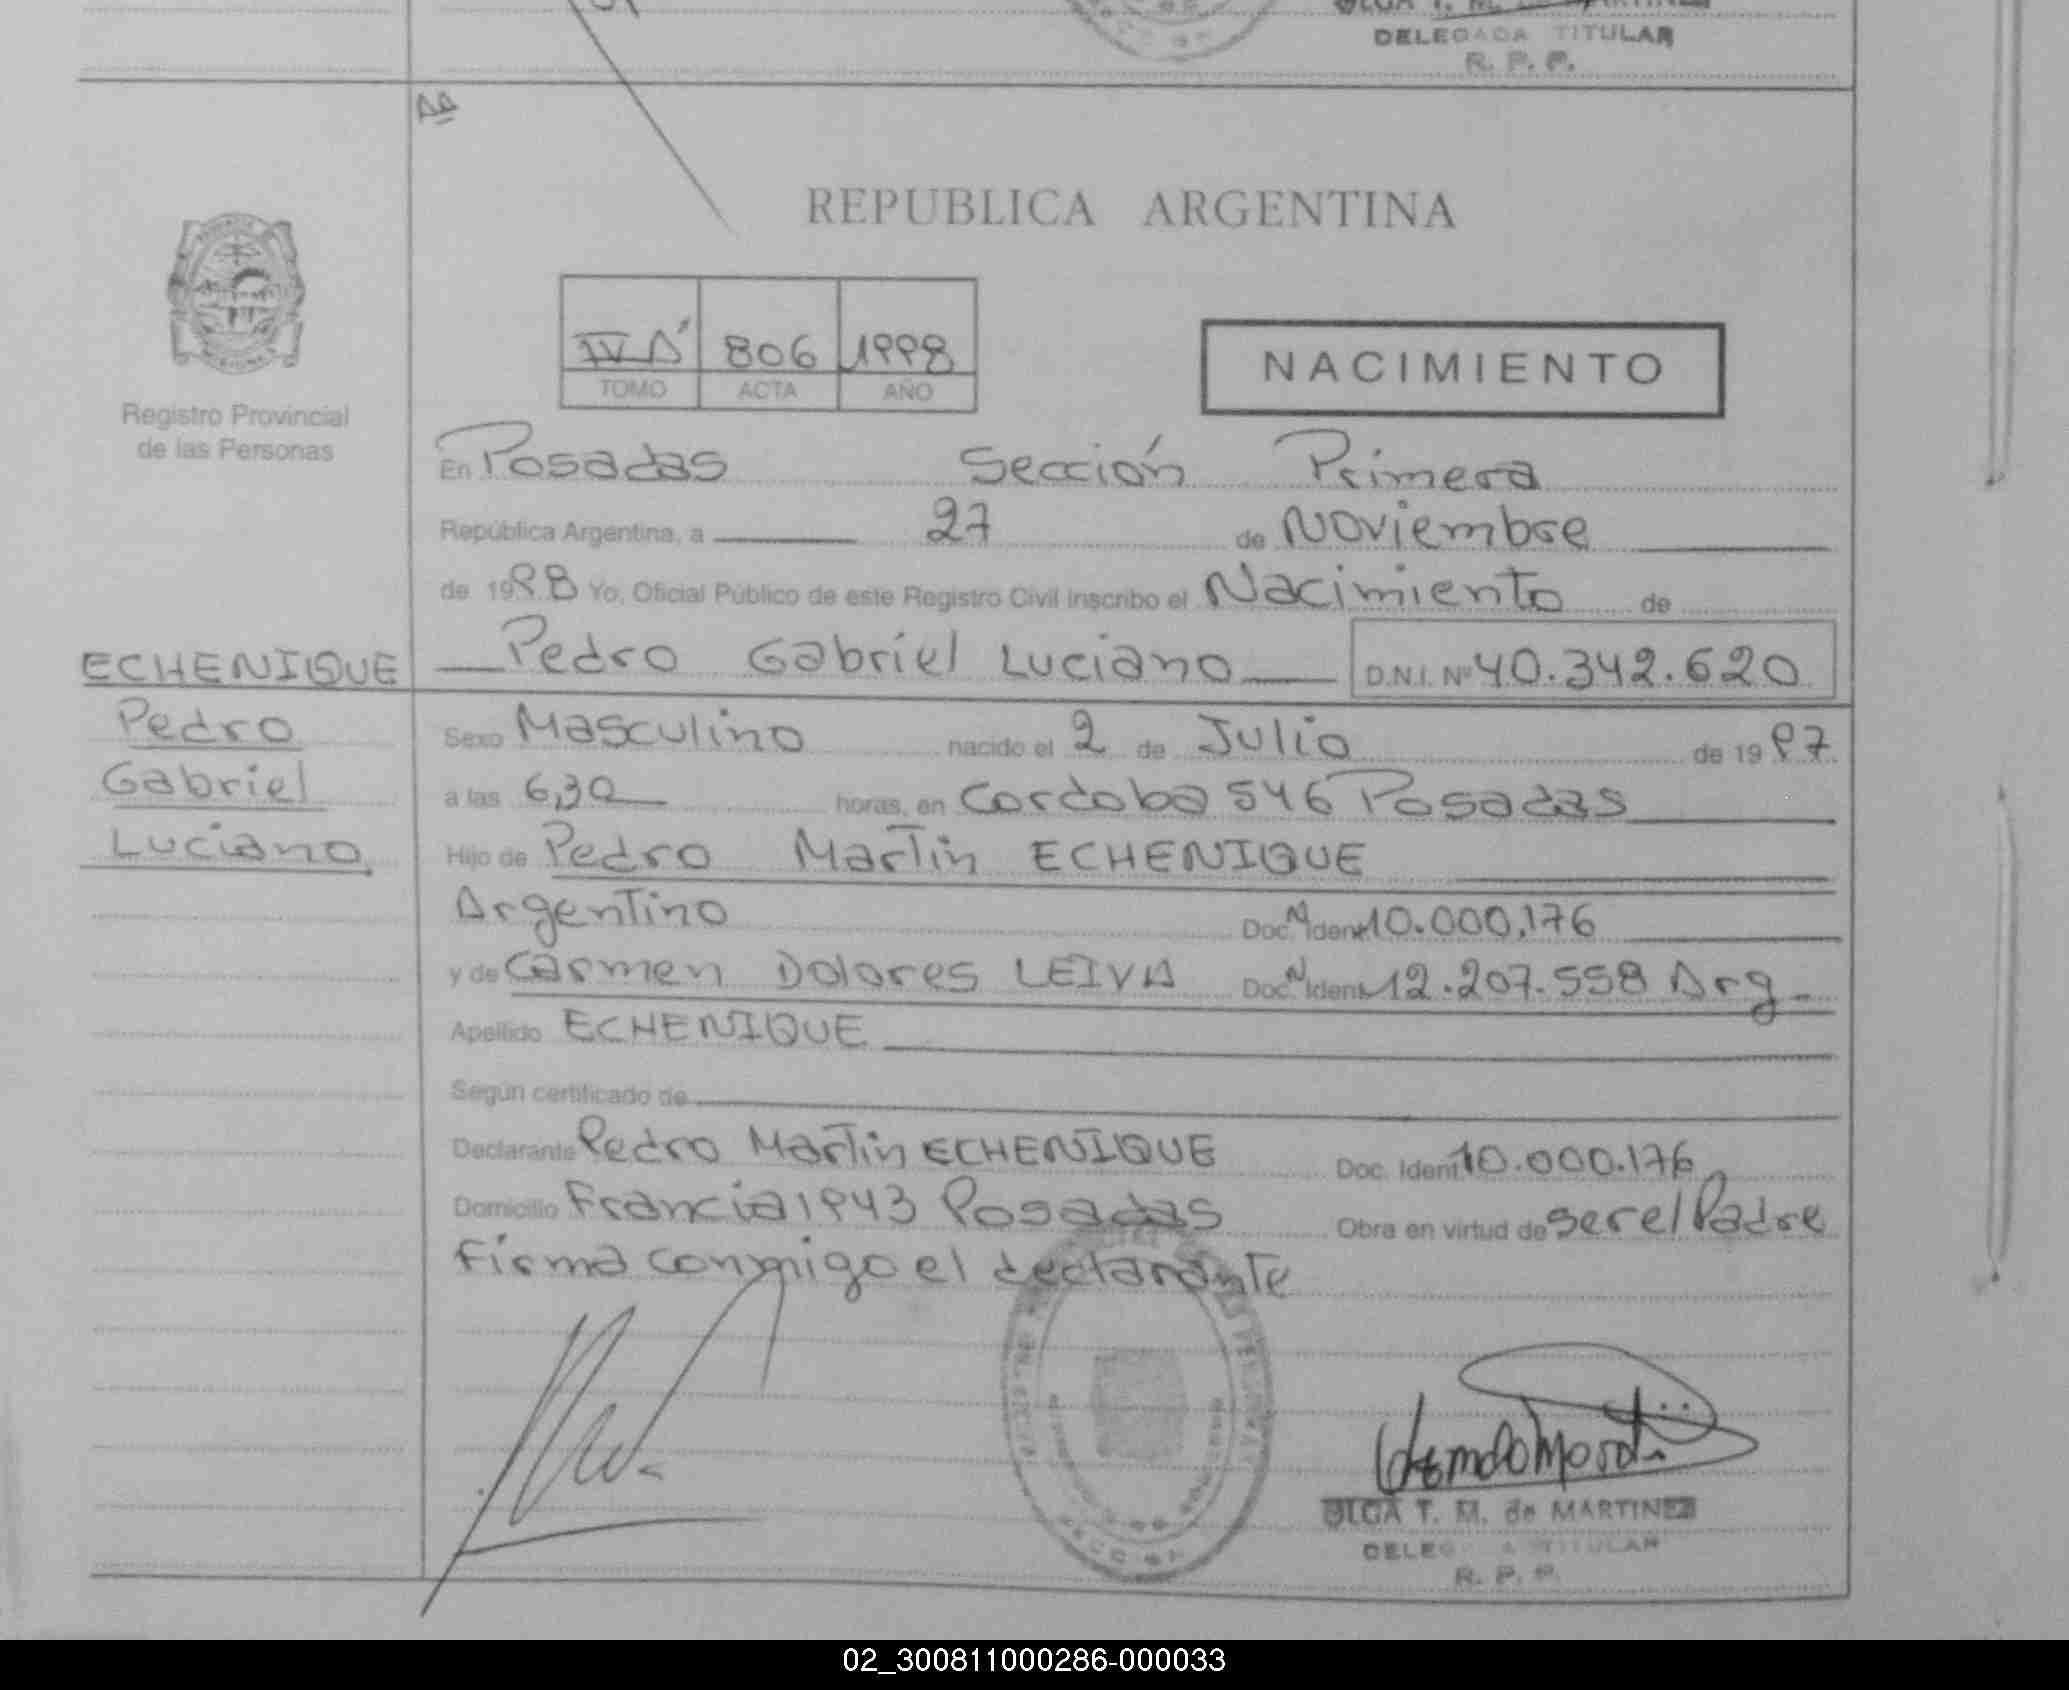 DELEGADA TITULAR
R. P. P.
REPUBLICA ARGENTINA
806 1998
TOMO ACTA AÑO
NACIMIENTO
Registro Provincial
de las Personas
En Posadas Sección Primera
República Argentina, a 27 de Noviembre
de 1998 Yo, Oficial Público de este Registro Civil inscribo el Nacimiento de
Pedro Gabriel Luciano D.N.I. Nº 40.342.620
ECHENIQUE
Pedro
Gabriel
Luciano
Sexo Masculino nacido el 2 de Julio de 1997
a las 6,30 horas, en Cordoba 546 Posadas
Hijo de Pedro Martin ECHENIQUE
Argentino Doc. N Ident 10.000.176
y de Carmen Dolores LEIVA Doc. N Ident 12.207.558 Arg
Apellido ECHENIQUE
Según certificado de
Declarante Pedro Martin ECHENIQUE Doc. Ident 10.000.176
Domicilio Francia 1943 Posadas Obra en virtud de ser el Padre
Firma conmigo el declarante
OLGA T. M. de MARTINEZ
DELEGADA TITULAR
R. P. P.
02_300811000286-000033